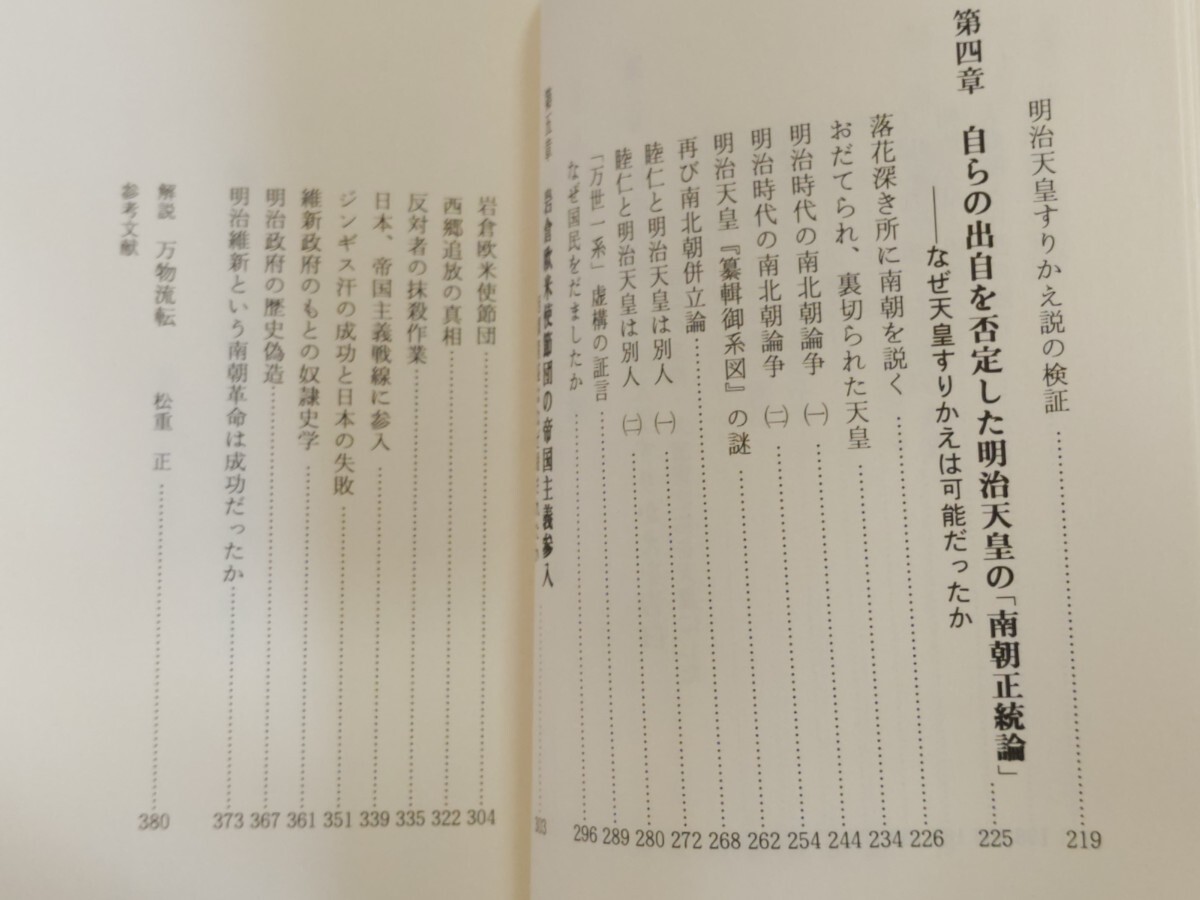 明治天皇すりかえ説の検証 219
第四章 自らの出自を否定した明治天皇の「南朝正統論」 225
――なぜ天皇すりかえは可能だったか
落花深き所に南朝を説く 226
おだてられ、裏切られた天皇 234
明治時代の南北朝論争 ㈠ 244
明治時代の南北朝論争 ㈡ 254
明治天皇『纂輯御系図』の謎 262
再び南北朝併立論 268
睦仁と明治天皇は別人 ㈠ 272
睦仁と明治天皇は別人 ㈡ 280
「万世一系」虚構の証言 289
なぜ国民をだましたか 296
第五章 岩倉欧米使節団の帝国主義参入 303
岩倉欧米使節団 304
西郷追放の真相 322
反対者の抹殺作業 335
日本、帝国主義戦線に参入 339
ジンギス汗の成功と日本の失敗 351
維新政府のもとの奴隷史学 361
明治政府の歴史偽造 367
明治維新という南朝革命は成功だったか 373
解説 万物流転 松重 正 380
参考文献